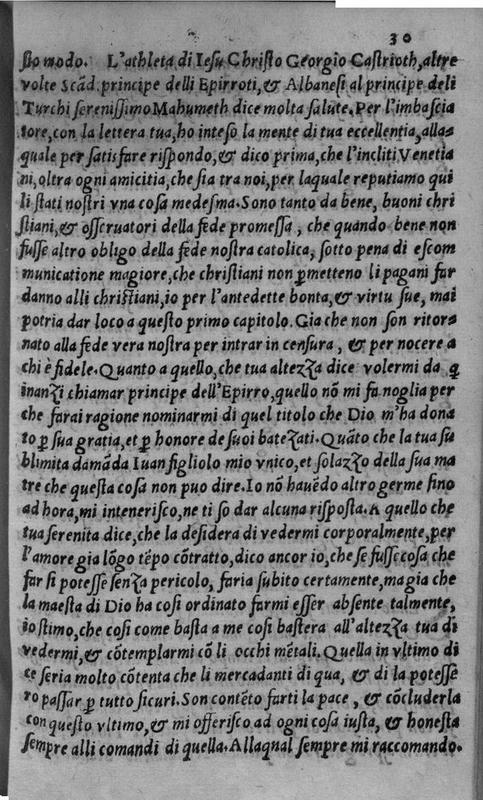 30
sto modo. L'athleta di Iesu Christo Georgio Castrioth, altre
volte Scãd. principe delli Epirroti, & Albanesi al principe deli
Turchi serenissimo Mahumeth dice molta salute. Per l'imbascia
tore, con la lettera tua, ho inteso la mente di tua eccellentia, alla-
quale per satisfare rispondo, & dico prima, che l'incliti Venetia
ni, oltra ogni amicitia, che sia tra noi, per laquale reputiamo qui
li stati nostri vna cosa medesma. Sono tanto da bene, buoni chri
stiani, & osseruatori della fede promessa, che quando bene non
fusse altro obligo della fede nostra catolica, sotto pena di escom
municatione magiore, che christiani non ꝑmetteno li pagani far
danno alli christiani, io per l'antedette bonta, & virtu sue, mai
potria dar loco a questo primo capitolo. Gia che non son ritor-
nato alla fede vera nostra per intrar in censura, & per nocere a
chi è fidele. Quanto a quello, che tua altezza dice volermi da q̃
inanzi chiamar principe dell'Epirro, quello nõ mi fa noglia per
che farai ragione nominarmi di quel titolo che Dio m'ha dona
to ꝑ sua gratia, et ꝑ honore de suoi batezati. Quãto che la tua su
blimita damãda Iuan figliolo mio vnico, et solazzo della sua ma
tre che questa cosa non puo dire. Io nõ hauẽdo altro germe fino
ad hora, mi intenerisco, ne ti so dar alcuna risposta. A quello che
tua serenita dice, che la desidera di vedermi corporalmente, per
l'amore gia lõgo tẽpo cõtratto, dico ancor io, che se fusse cosa che
far si potesse senza pericolo, faria subito certamente, magia che
la maesta di Dio ha cosi ordinato farmi esser absente talmente,
io stimo, che cosi come basta a me cosi bastera all'altezza tua di
vedermi, & cõtemplarmi cõ li occhi mẽtali. Quella in vltimo di
ce seria molto cõtenta che li mercadanti di qua, & di la potesse
ro passar ꝑ tutto sicuri. Son contẽto farti la pace, & cõcluderla
con questo vltimo, & mi offerisco ad ogni cosa iusta, & honesta
sempre alli comandi di quella. Allaqnal sempre mi raccomando.